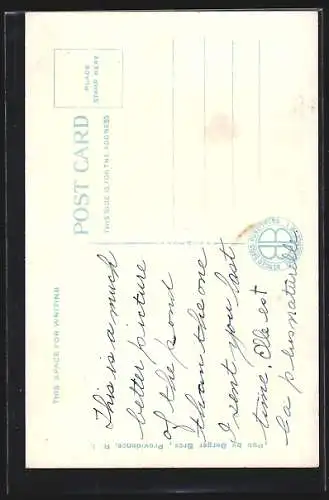 THIS SPACE FOR WRITING
POST CARD
THIS SIDE IS FOR THE ADDRESS
PLACE
STAMP HERE
This is a much
better picture
of the pond
than the one
I sent you last
time. Elle est
la plus naturelle
Pub by Berger Bros., Providence, R. I.